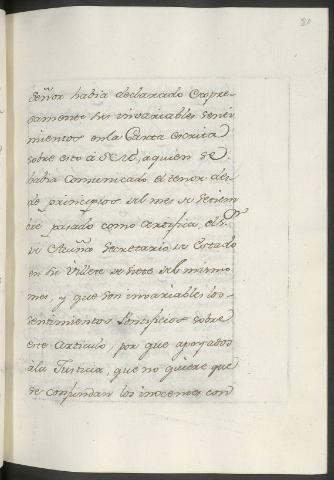 Señor habia declarado expre-
samente sus invariables senti
mientos en la Carta escrita
sobre esto á S.E.
habia comunicado el tenor
de principios del mes de Setiem
bre pasado como certifica el S.or
de Acuña Secretario de Estado
en su Villete de siete del mismo
mes, y que son invariables los
sentimientos Pontificios sobre
este Articulo, por que apoyados
á la Justicia, que no quiere que
se confundan los inocentes con